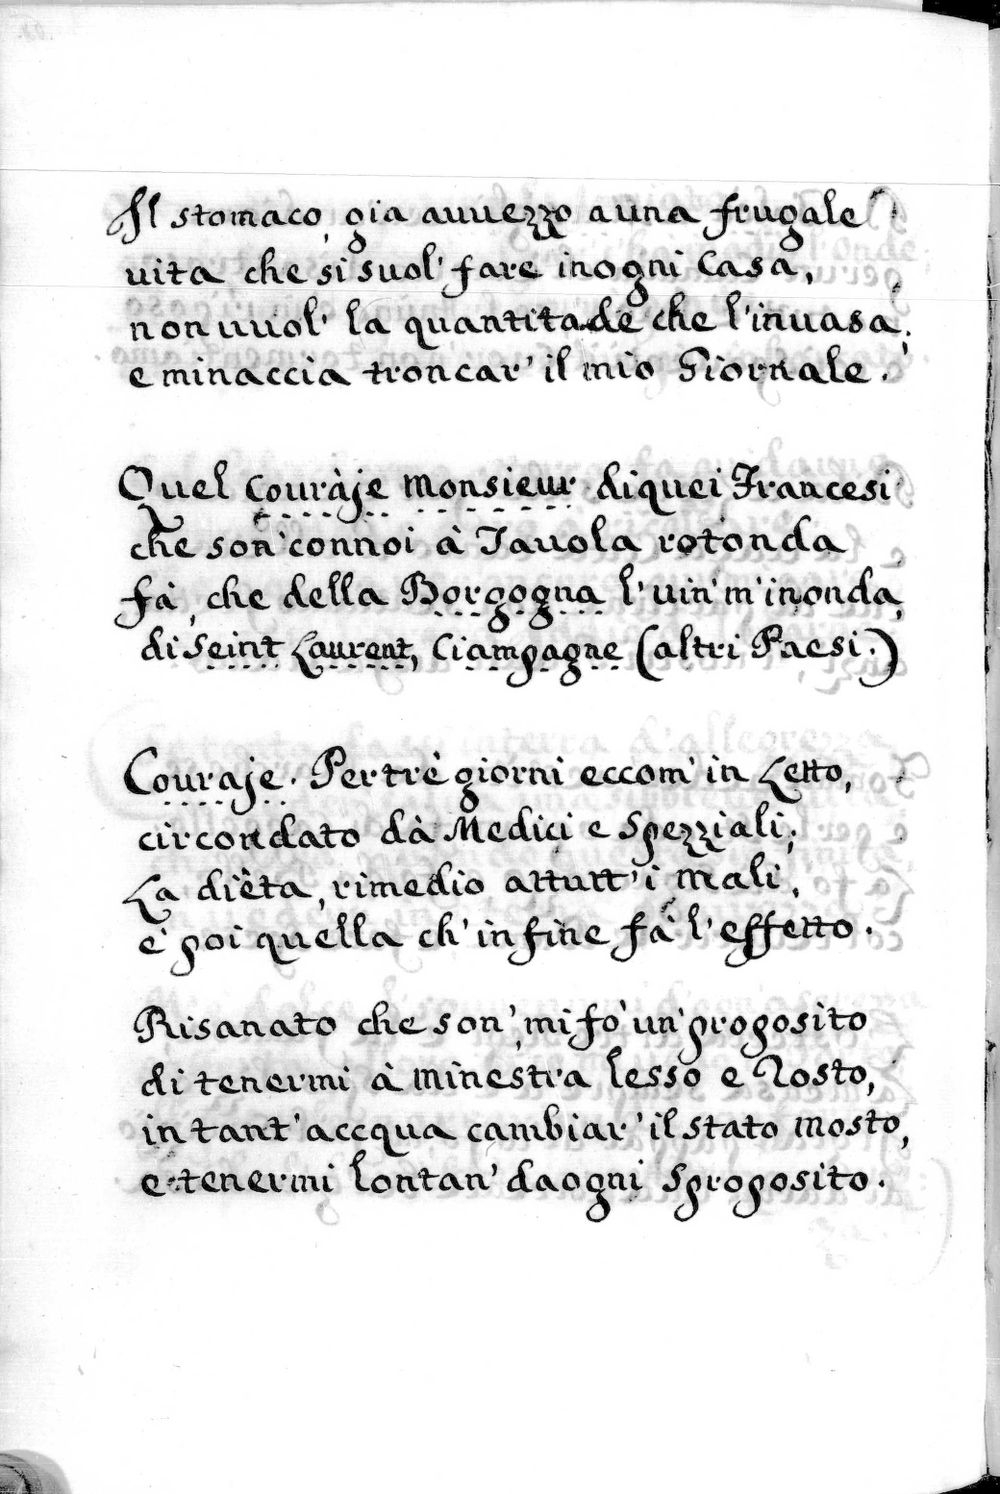 Il stomaco, gia auuezzo a una frugale
uita che si suol' fare in ogni Casa,
non uuol' la quantitade che l'inuasa,
e minaccia troncar' il mio Giornale.
Quel Couràje Monsieur di quei Francesi
che son' con noi à Tauola rotonda
fà, che della Borgogna l'uin' m'inonda,
di Seint Laurent, Ciampagne (altri Paesi.)
Couraje. Per trè giorni eccom' in Letto,
circondato dà Medici e Spezziali;
La diêta, rimedio attutt' i mali,
e' poi quella ch' infine fà l'effetto.
Risanato che son', mi fò un' proposito
di tenermi à minestra lesso e Rosto,
in tant' accqua cambiar' il stato mosto,
e tenermi lontan' da ogni sproposito.